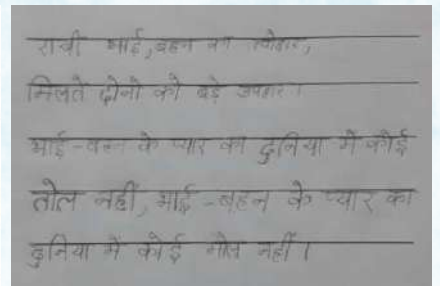 राखी भाई, बहन का त्योहार,
मिलते दोनो को बड़े उपहार।
भाई - बहन के प्यार का दुनिया में कोई
तोल नहीं, भाई - बहन के प्यार का
दुनिया में कोई मोल नहीं।